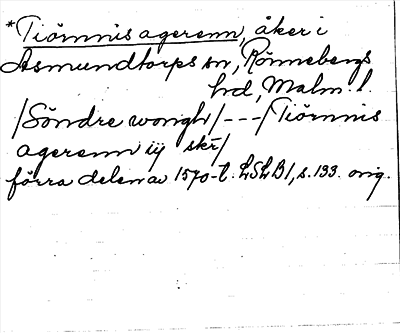 *Tiömnis agerenn, åker i
Asmundtorps sn, Rönnebergs
hd, Malm. l.
/Söndre wongh/---/Tiörnis
agerenn iij skr/
förra delen av 1570-t. LSLB1, s. 133. orig.